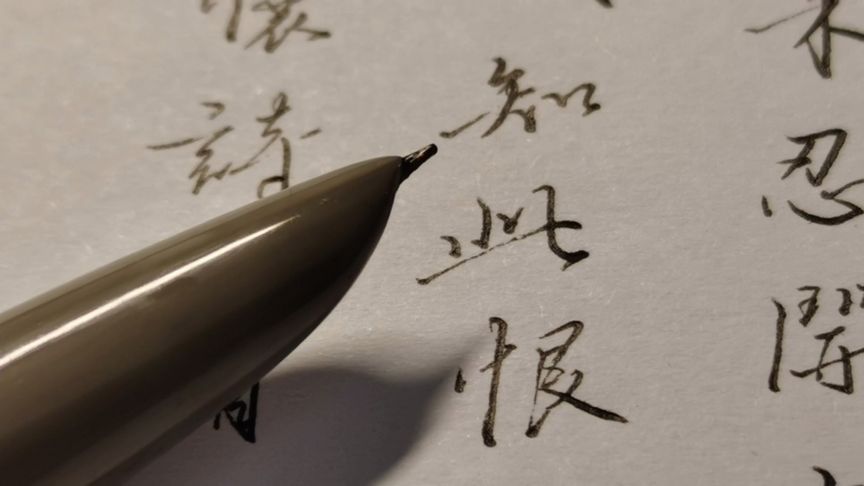 未忍開
知此恨
懷詩